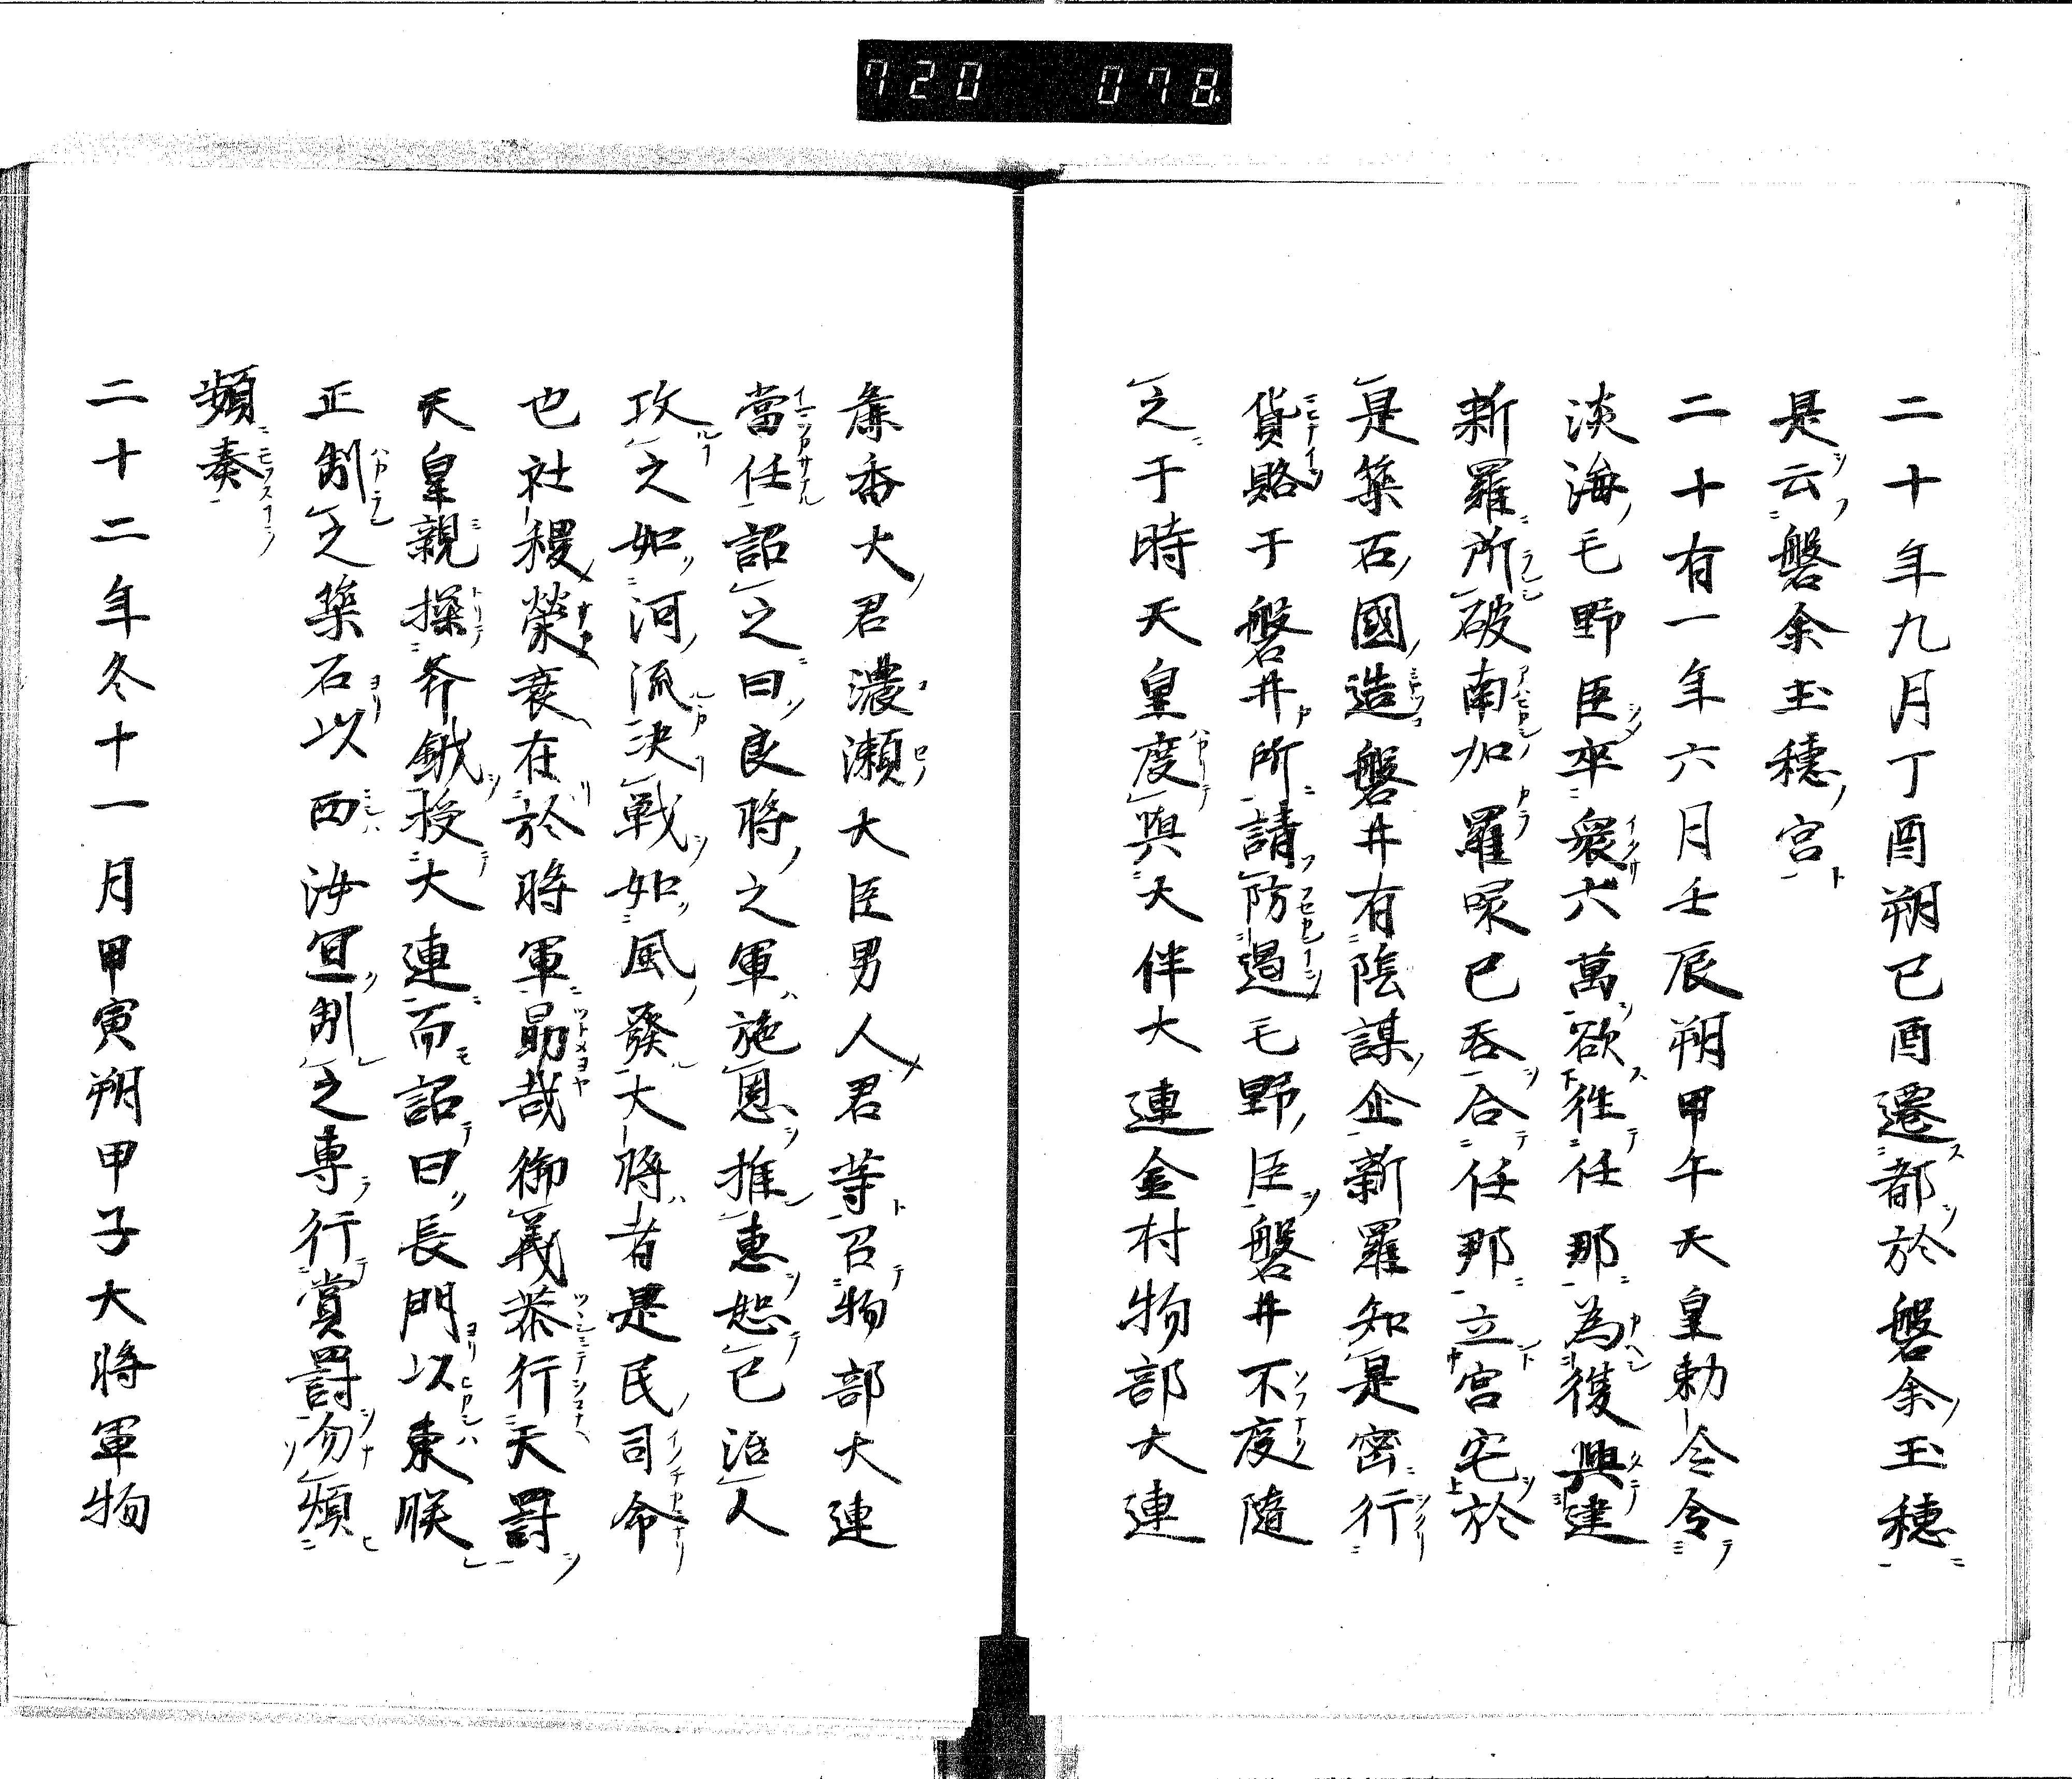 720 078
二十年九月丁酉朔己酉遷都於磐余玉穗
是云磐余玉穗宮
二十有一年六月壬辰朔甲午天皇勅令令
淡海毛野臣卒衆六萬欲徃任那為復興建
新羅所破南加羅㖨己吞合任那立宮宅於
是築石國造磐井有陰謀企新羅知是密行
貨賂于磐井所請防遏毛野臣磐井不度隨
之于時天皇度與大伴大連金村物部大連
麁香大君濃瀬大臣男人君等召物部大連
當任詔之曰良將之軍施恩推惠恕已治人
攻之如河流决戦如風發大將者是民司命
也社稷榮衰在於將軍勗哉御義恭行天罰
天皇親操斧鉞授大連而詔曰長門以東朕
正制之築石以西海宜制之専行賞罰勿煩
頻奏
二十二年冬十一月甲寅朔甲子大將軍物